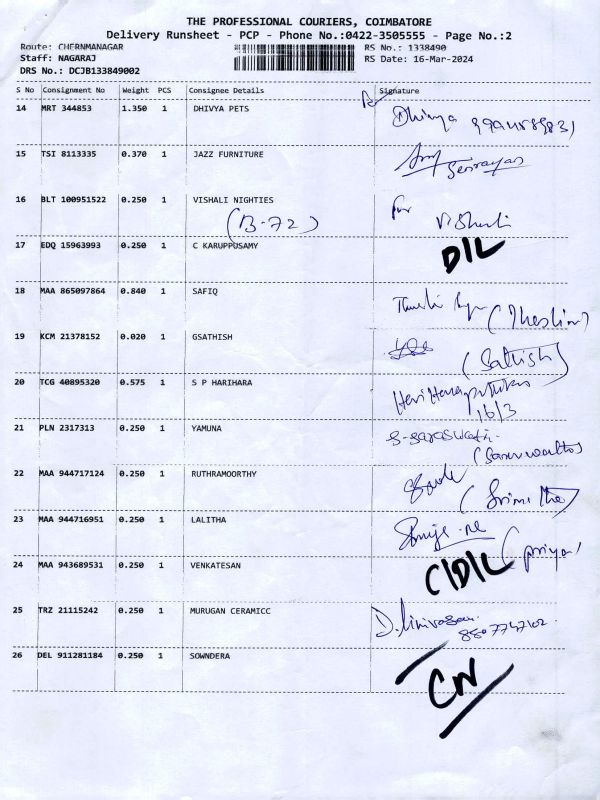 THE PROFESSIONAL COURIERS, COIMBATORE
Delivery Runsheet - PCP - Phone No.:0422-3505555 - Page No.:2
Route: CHERNMANAGAR RS No.: 1338490
Staff: NAGARAJ RS Date: 16-Mar-2024
DRS No.: DCJB133849002
S No Consignment No Weight PCS Consignee Details Signature
14 MRT 344853 1.350 1 DHIVYA PETS Dhivya
15 TSI 8113335 0.370 1 JAZZ FURNITURE
16 BLT 100951522 0.250 1 VISHALI NIGHTIES for
(B-72)
17 EDQ 15963993 0.250 1 C KARUPPUSAMY D/L
18 MAA 865097864 0.840 1 SAFIQ
19 KCM 21378152 0.020 1 GSATHISH (Sathish)
20 TCG 40895320 0.575 1 S P HARIHARA
16/3
21 PLN 2317313 0.250 1 YAMUNA
22 MAA 944717124 0.250 1 RUTHRAMOORTHY
23 MAA 944716951 0.250 1 LALITHA
24 MAA 943689531 0.250 1 VENKATESAN C/D/L (priya)
25 TRZ 21115242 0.250 1 MURUGAN CERAMICC
26 DEL 911281184 0.250 1 SOWNDERA CN